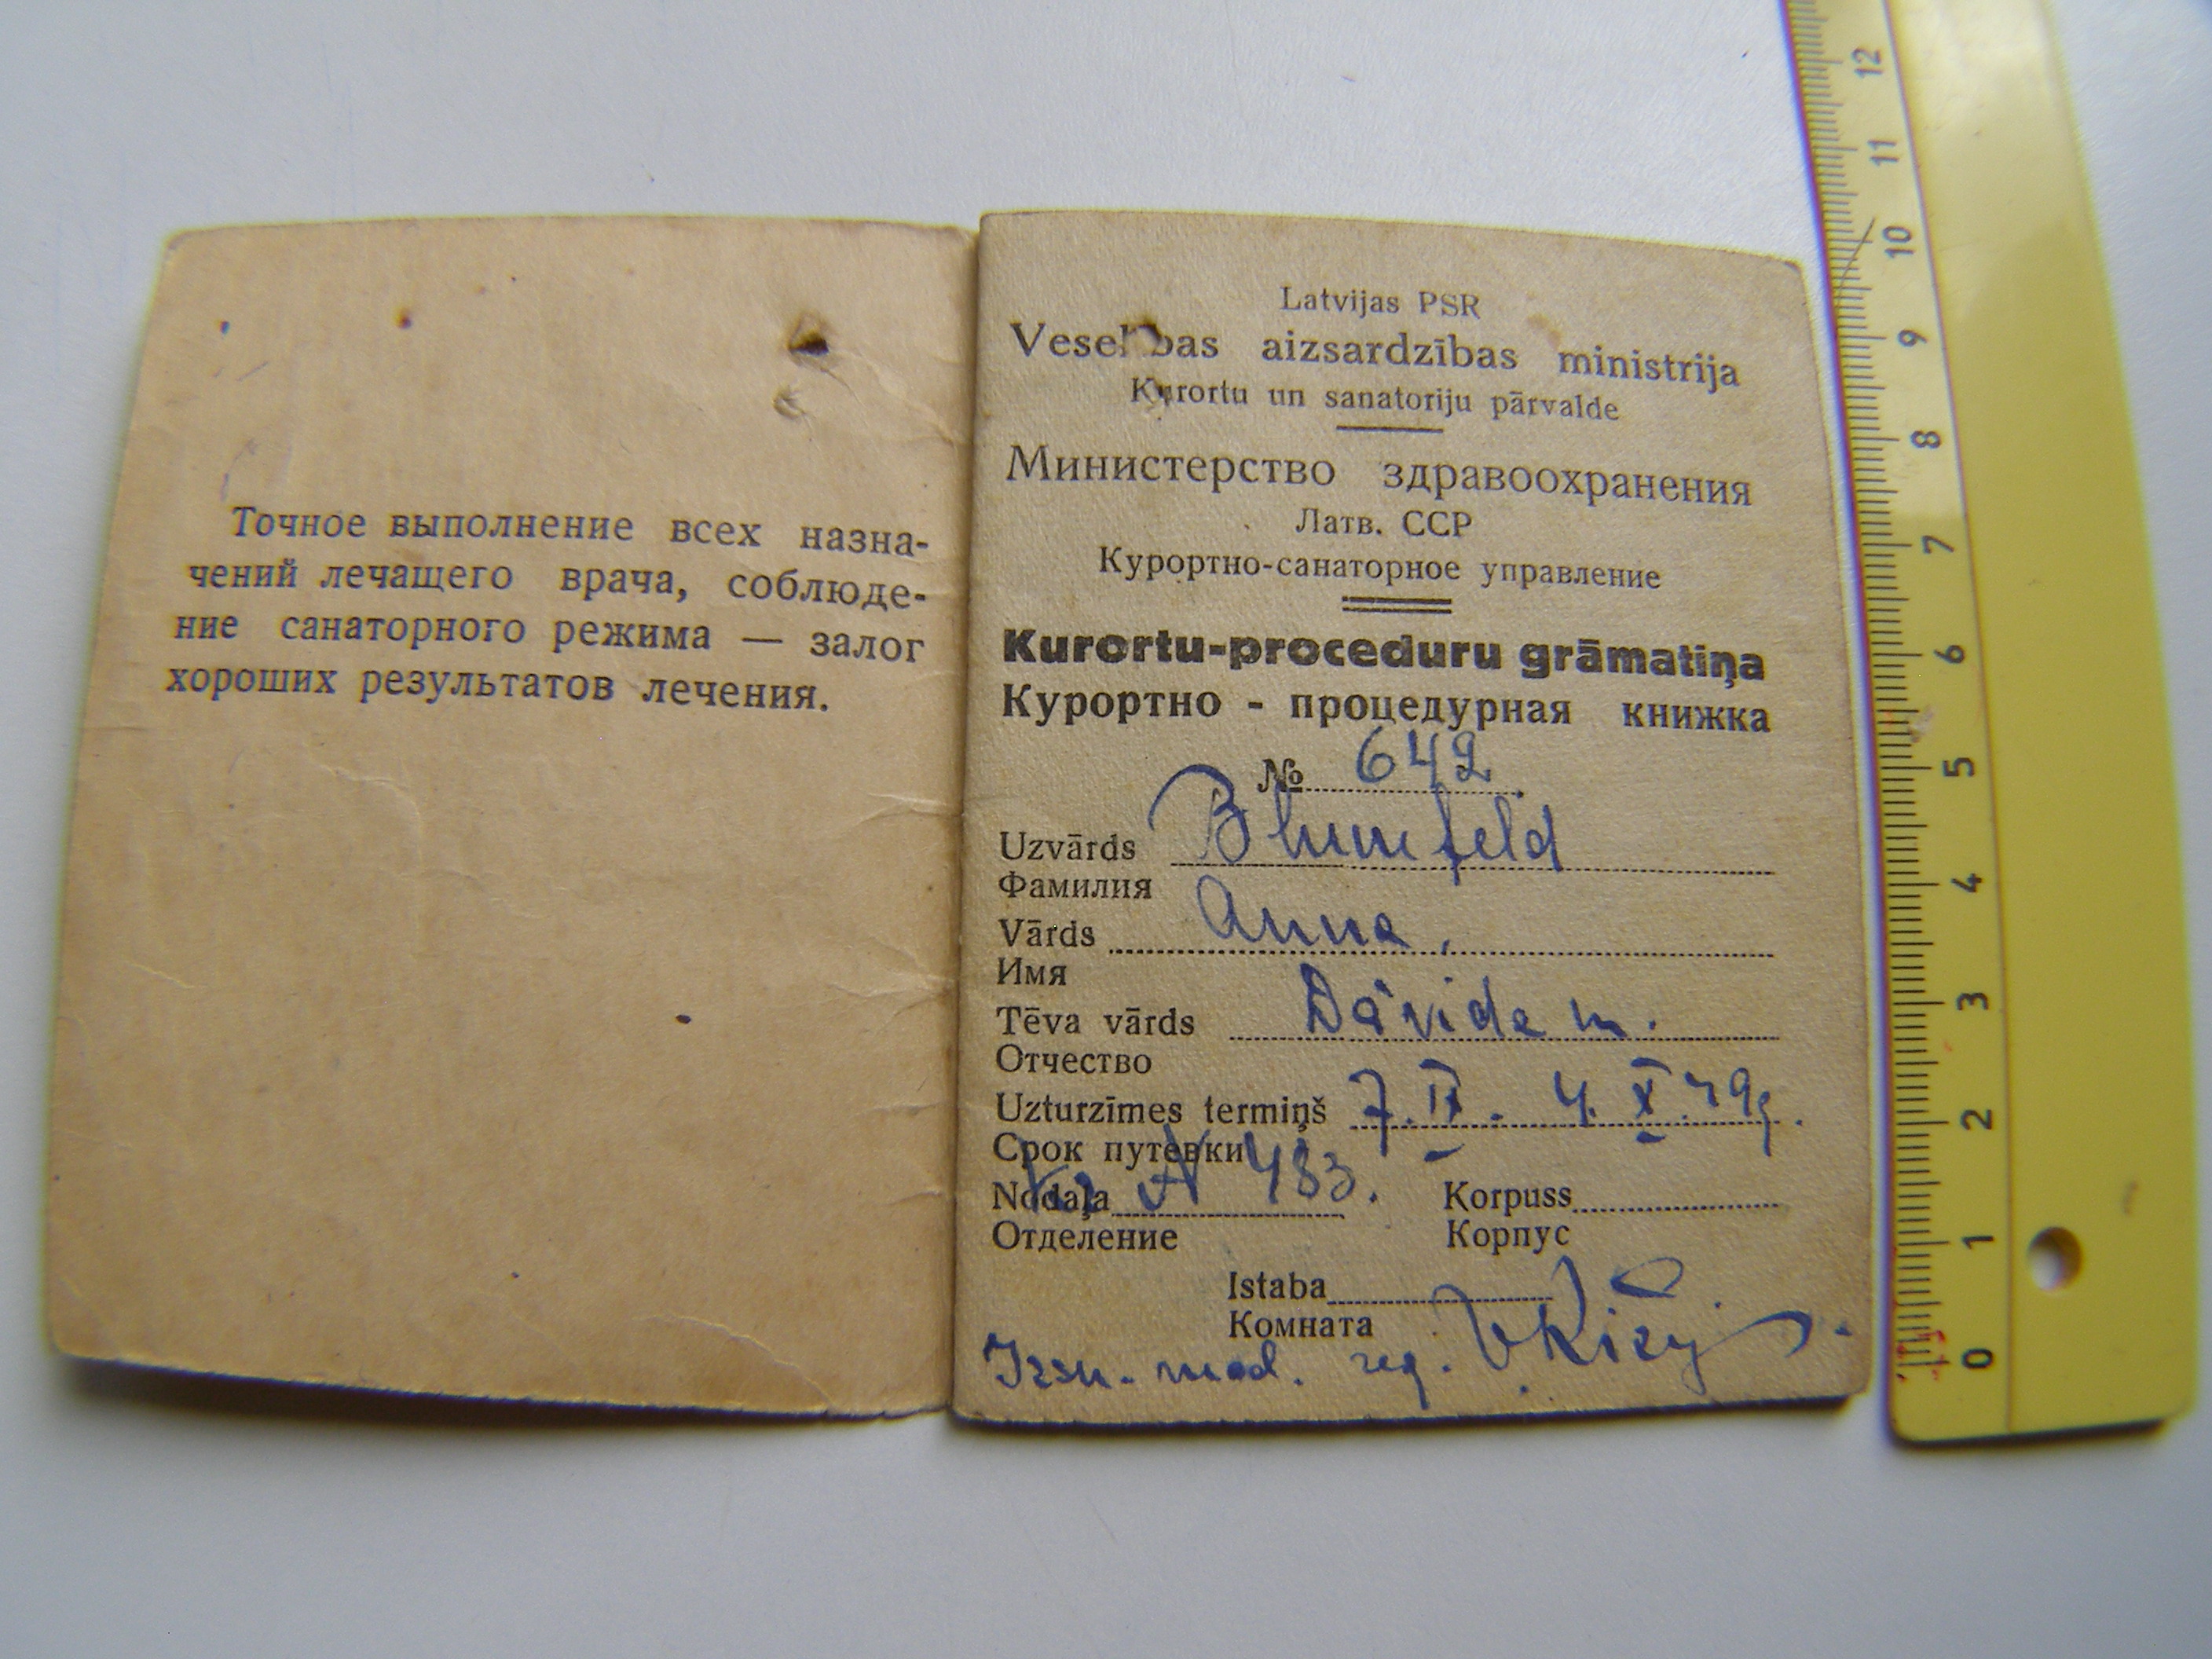 Точное выполнение всех назна-
чений лечащего врача, соблюде-
ние санаторного режима — залог
хороших результатов лечения.
Latvijas PSR
aizsardzības ministrija
Kurortu un sanatoriju pārvalde
Министерство здравоохранения
Латв. ССР
Курортно-санаторное управление
Kurortu-proceduru grāmatiņa
Курортно - процедурная книжка
№ 642
Uzvārds Blumfeld
Фамилия
Vārds Anna,
Имя
Tēva vārds Dāvida m.
Отчество
Uzturzīmes termiņš 7. IX. 4. X. 49g.
Срок путевки
Nodaļa N 483. Korpuss
Отделение Корпус
Istaba
Комната
med. reg.
12
11
10
9
8
7
6
5
4
3
2
1
0